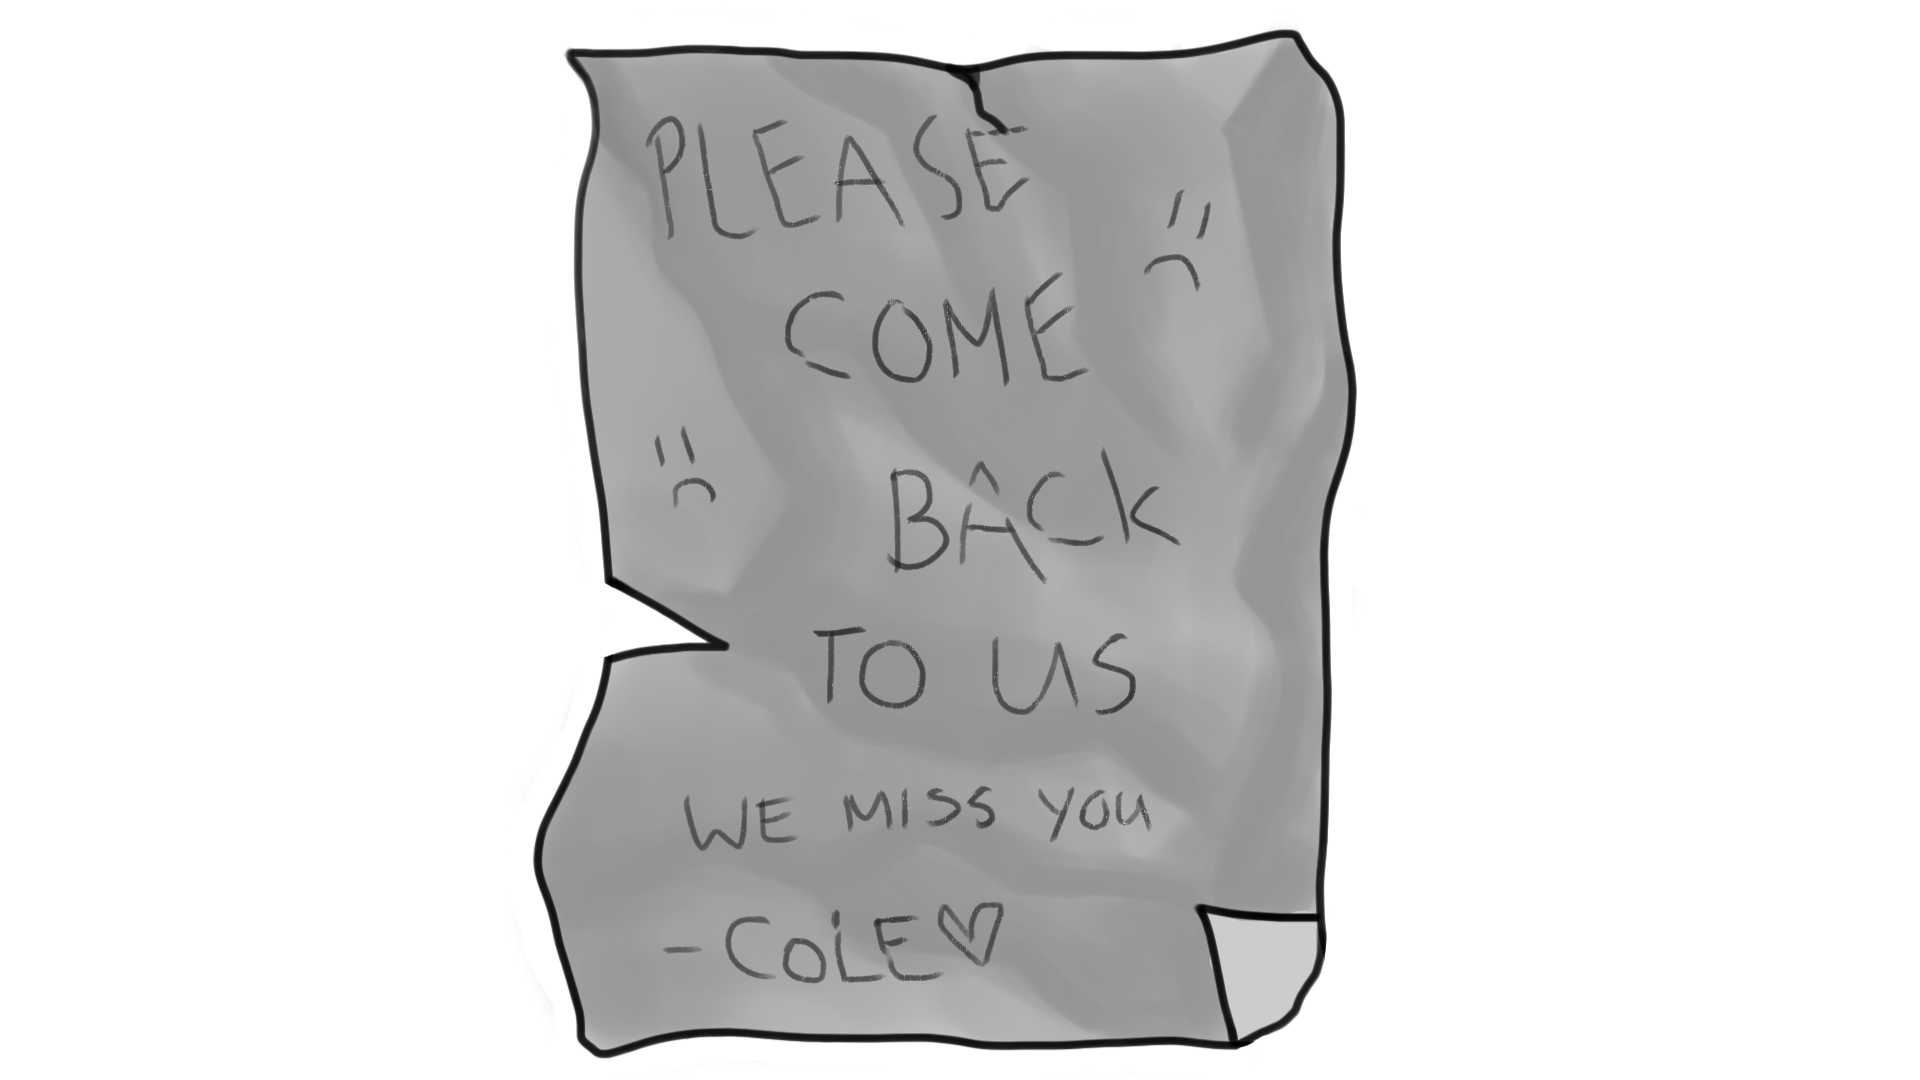 PLEASE
COME
BACK
TO US
WE MISS YOU
-COLE♡